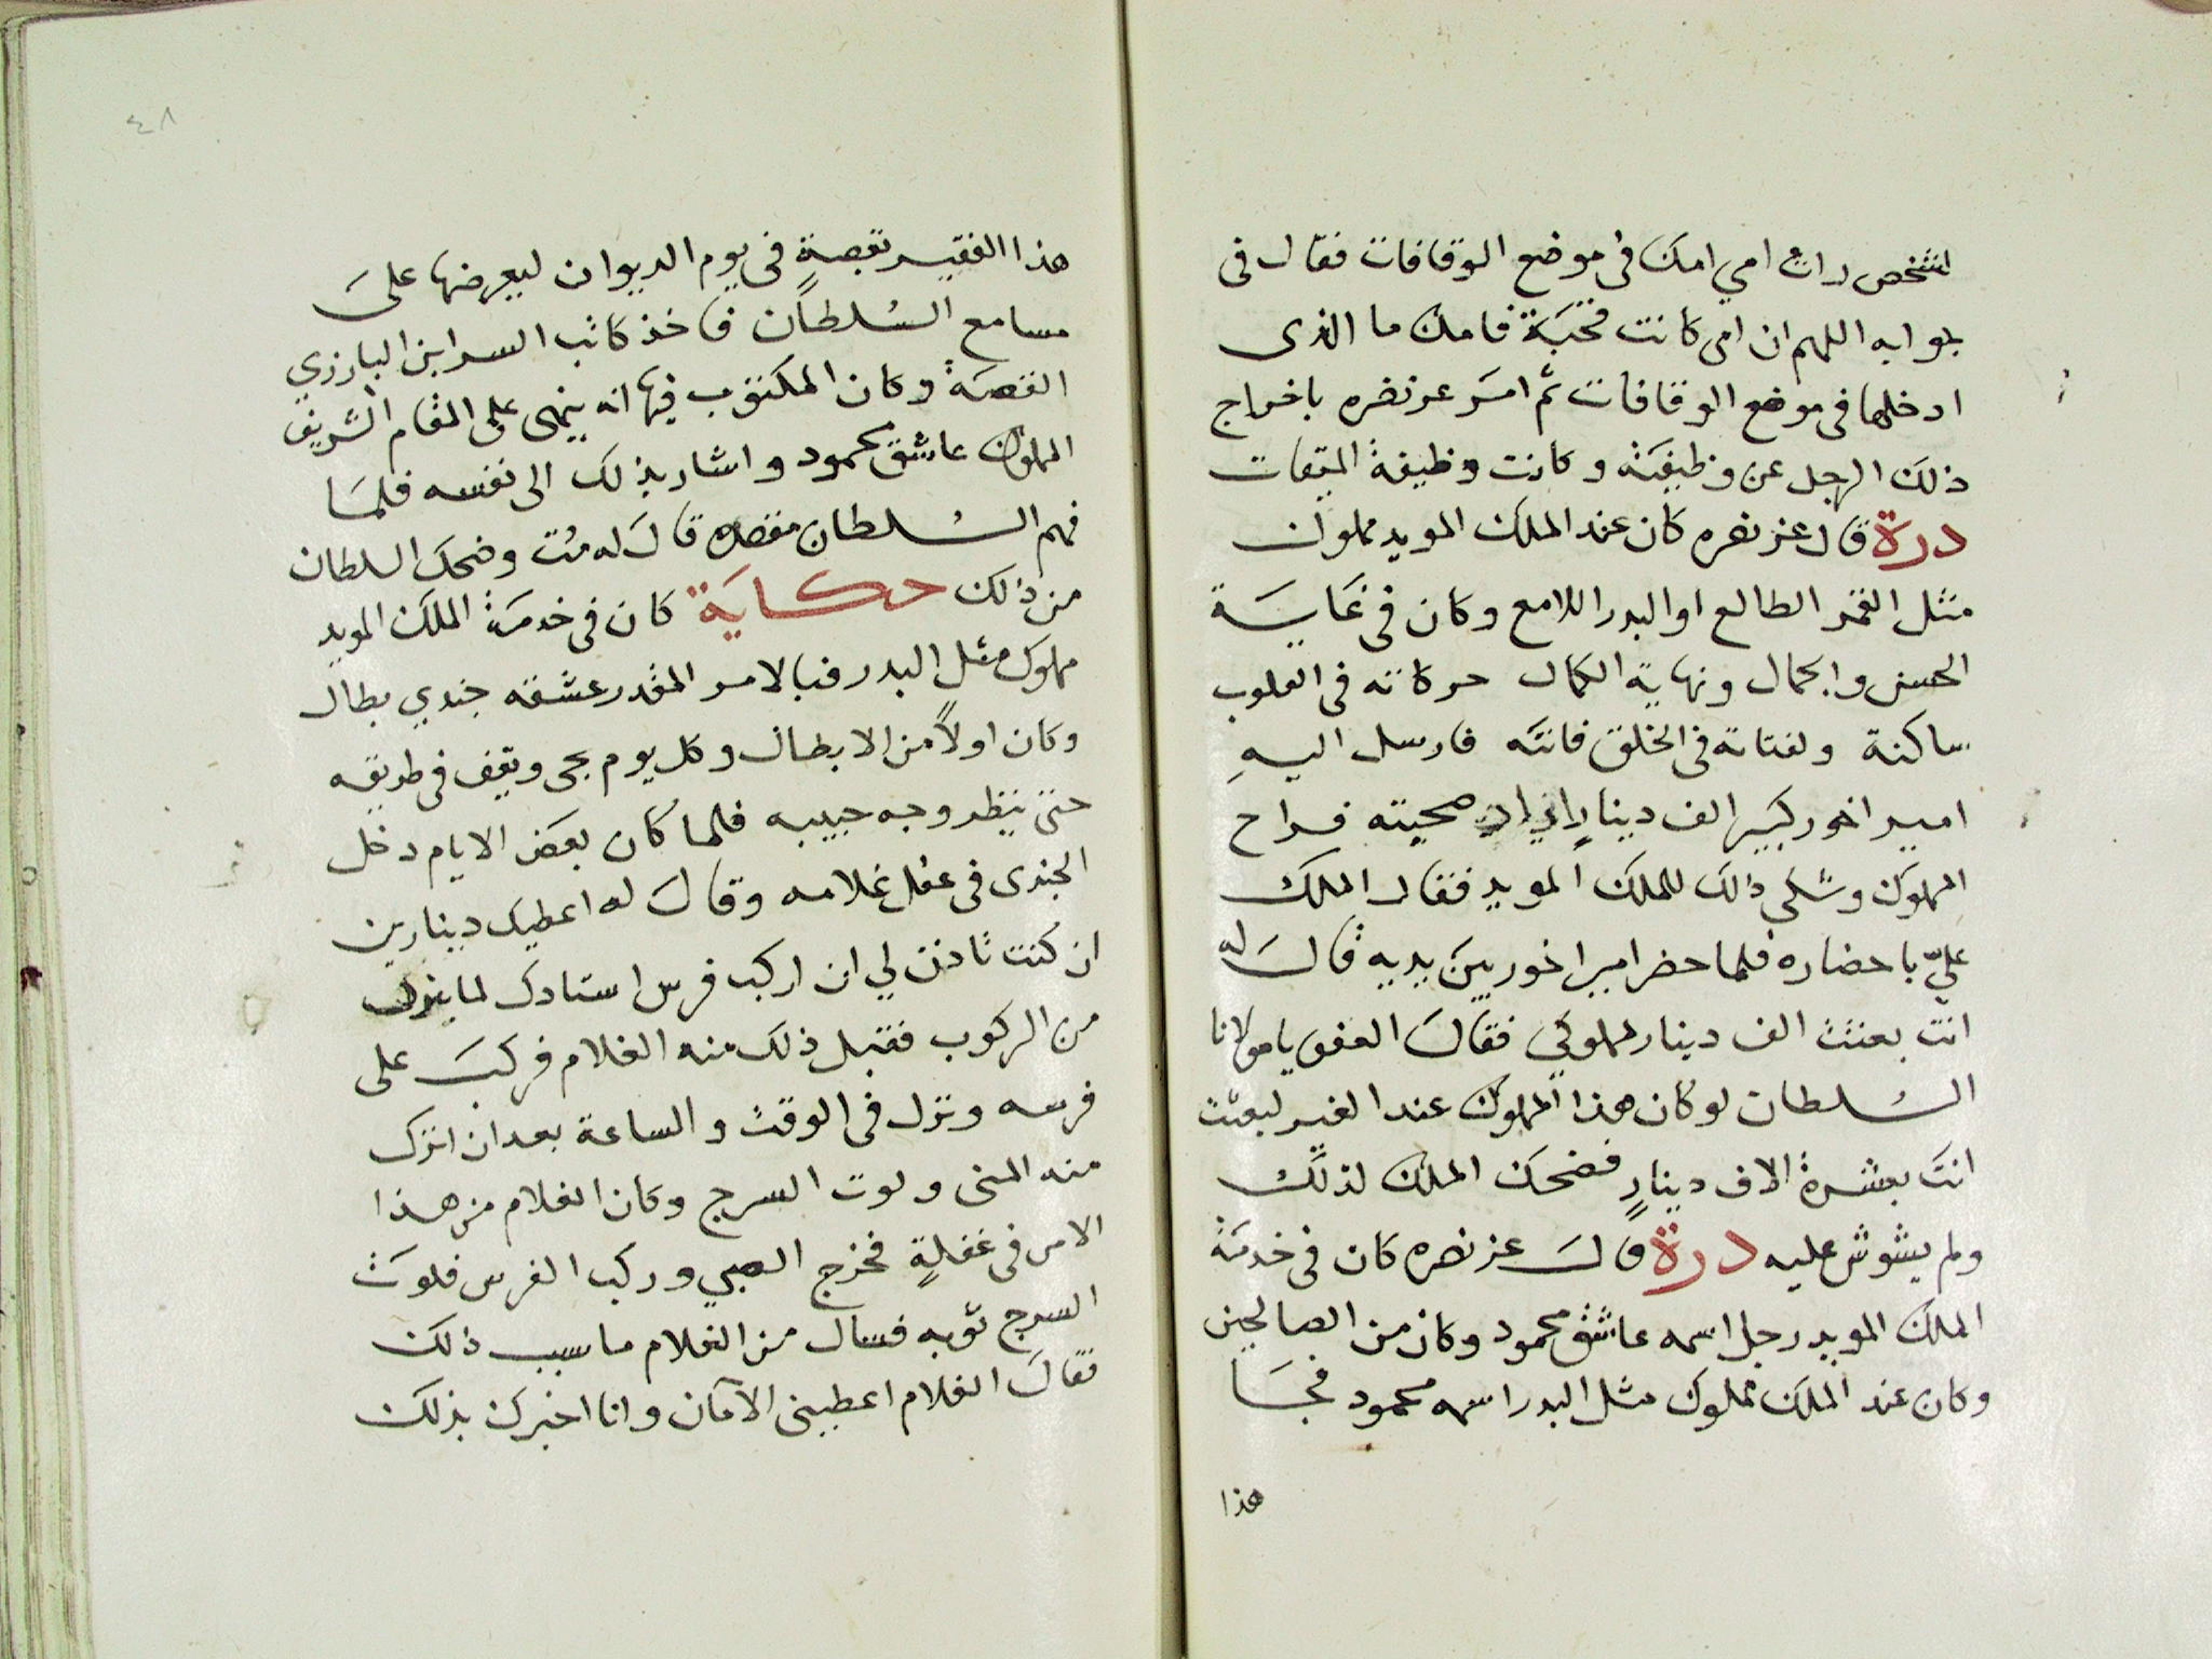 لشخص رات امي امك في موضع الوقافات فقال في
جوابه اللهم ان امي كانت قحبة فامك ما الذي
ادخلها في موضع الوقافات ثم امر عز نصره باخراج
ذلك الرجل عن وظيفته وكانت وظيفة الميقات
درة قال عز نصره كان عند الملك المويد مملوك
مثل القمر الطالع او البدر اللامع وكان في غاية
الحسن والجمال ونهاية الكمال حركاته في القلوب
ساكنة ولفتاته في الخلق فاتنه فارسل اليه
امير اخور كبير الف دينار صحبته فراح
المملوك وشكى ذلك للملك المويد فقال الملك
علي باحضاره فلما حضر امير اخور بين يديه قال له
انت بعثت الف دينار لمملوكي فقال العفو يا مولانا
السلطان لو كان هذا المملوك عند الغير لبعثت
انت بعشرة الاف دينار فضحك الملك لذلك
ولم يشوش عليه درة قال عز نصره كان في خدمة
الملك المويد رجل اسمه عاشق محمود وكان من الصالحين
وكان عند الملك مملوك مثل البدر اسمه محمود فجا
هذا
٤٨
هذا الفقير بقصة في يوم الديوان ليعرضها على
مسامع السلطان فاخذ كاتب السر ابن البارزي
القصة وكان المكتوب فيها انه ينهى على المقام الشريف
المملوك عاشق محمود واشار بذلك الى نفسه فلما
فهم السلطان مقصده قال له مت وضحك السلطان
من ذلك حكاية كان في خدمة الملك المويد
مملوك مثل البدر فبالامر المقدر عشقه جندي بطال
وكان اولا من الابطال وكل يوم يجي ويقف في طريقه
حتى ينظر وجه حبيبه فلما كان بعض الايام دخل
الجندي في عقل غلامه وقال له اعطيك دينارين
ان كنت تاذن لي ان اركب فرس استادك لما ينزل
من الركوب فقبل ذلك منه الغلام فركب على
فرسه ونزل في الوقت والساعة بعد ان انزل
منه المنى ولوث السرج وكان الغلام من هذا
الامر في غفلة فخرج الصبي وركب الفرس فلوث
السرج ثوبه فسال من الغلام ما سبب ذلك
فقال الغلام اعطيني الامان وانا اخبرك بذلك